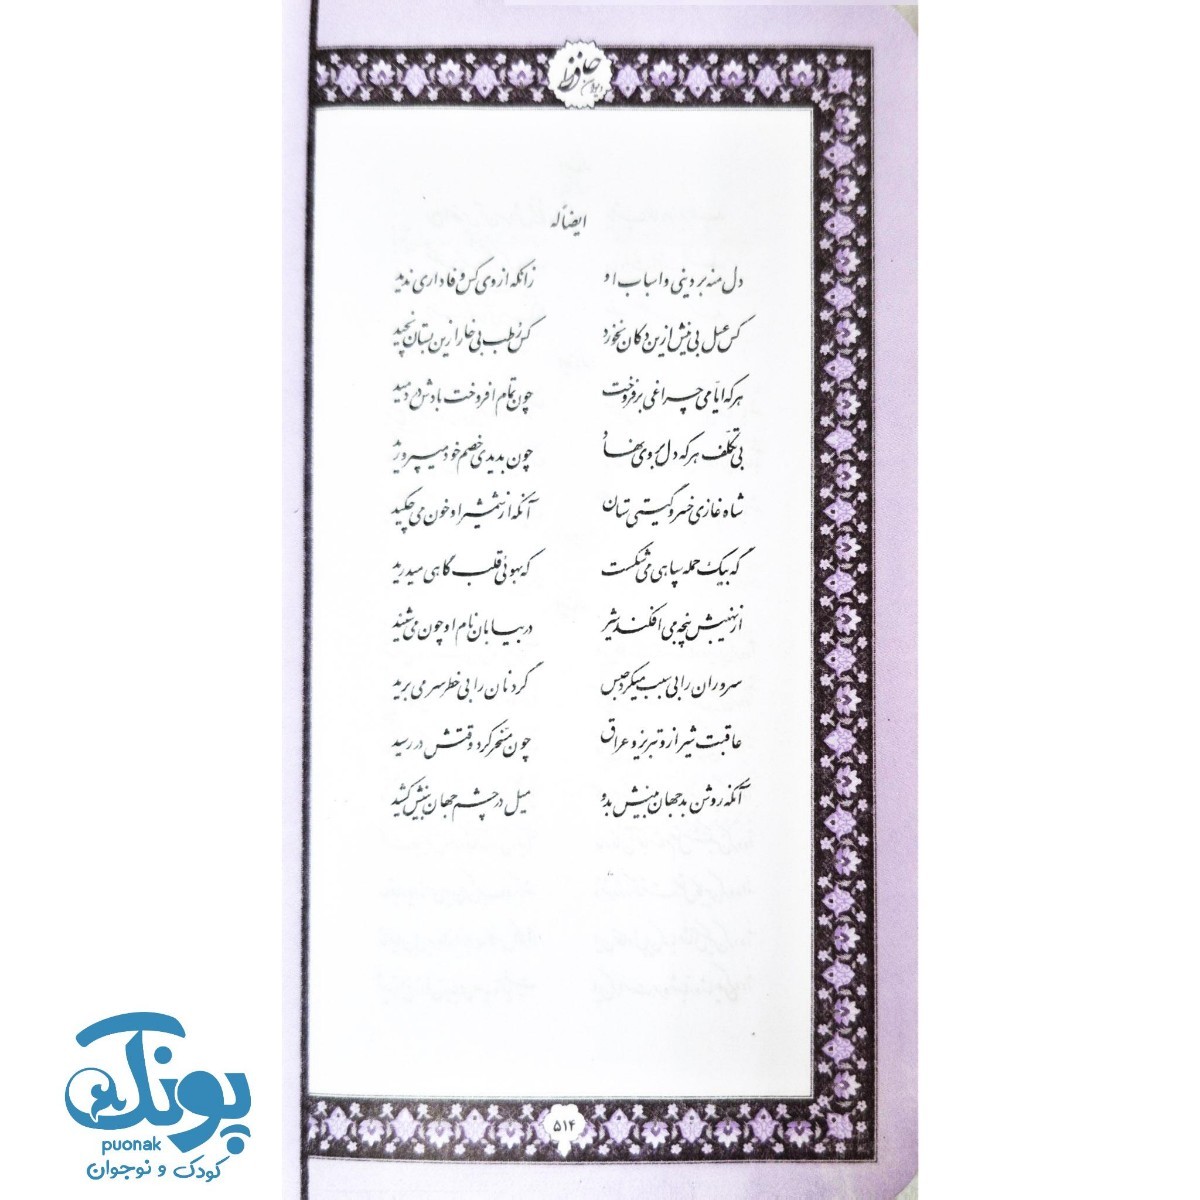 دیوان حافظ
ایضاً له
دل منه بر دینی و اسباب او زانکه از وی کس وفاداری ندید
کس عسل بی نیش ازین دکان نخورد کس رطب بی خار ازین بستان نچید
هر که ایامی چراغی بر فروخت چون تمام افروخت بادش در دمید
بی تکلف هر که دل بروی نهاد چون بدیدی خصم خود میپرورید
شاه غازی خسرو گیتی ستان آنکه از شمشیر او خون می چکید
گه بیک حمله سپاهی می شکست که بهوئی قلب گاهی میدرید
از نهیبش پنجه می افکند شیر در بیابان نام او چون می شنید
سروران را بی سبب میکرد حبس گردنان را بی خطر سر می برید
عاقبت شیراز و تبریز و عراق چون مسخر کرد وقتش در رسید
آنکه روشن بد جهان بینش بدو میل در چشم جهان بینش کشید
۵۱۴
پونک
puonak
کودک و نوجوان